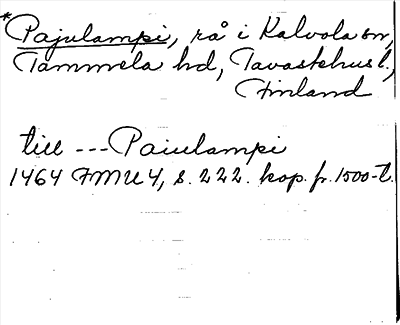 *Pajulampi, rå i Kalvola sn,
Tammela hd, Tavastehus l.,
Finland
till --- Paiulampi
1464 FMU 4, s. 222. kop. fr. 1500-t.